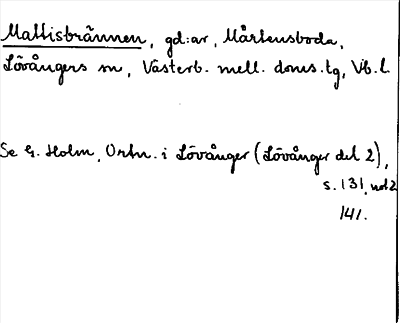 Mattisbrännen, gd:ar, Mårtensboda,
Lövångers sn, Västerb. mell. doms.tg, Vb.l.
Se G. Holm, Ortn. i Lövånger (Lövånger del 2),
s. 131, not 2
141.